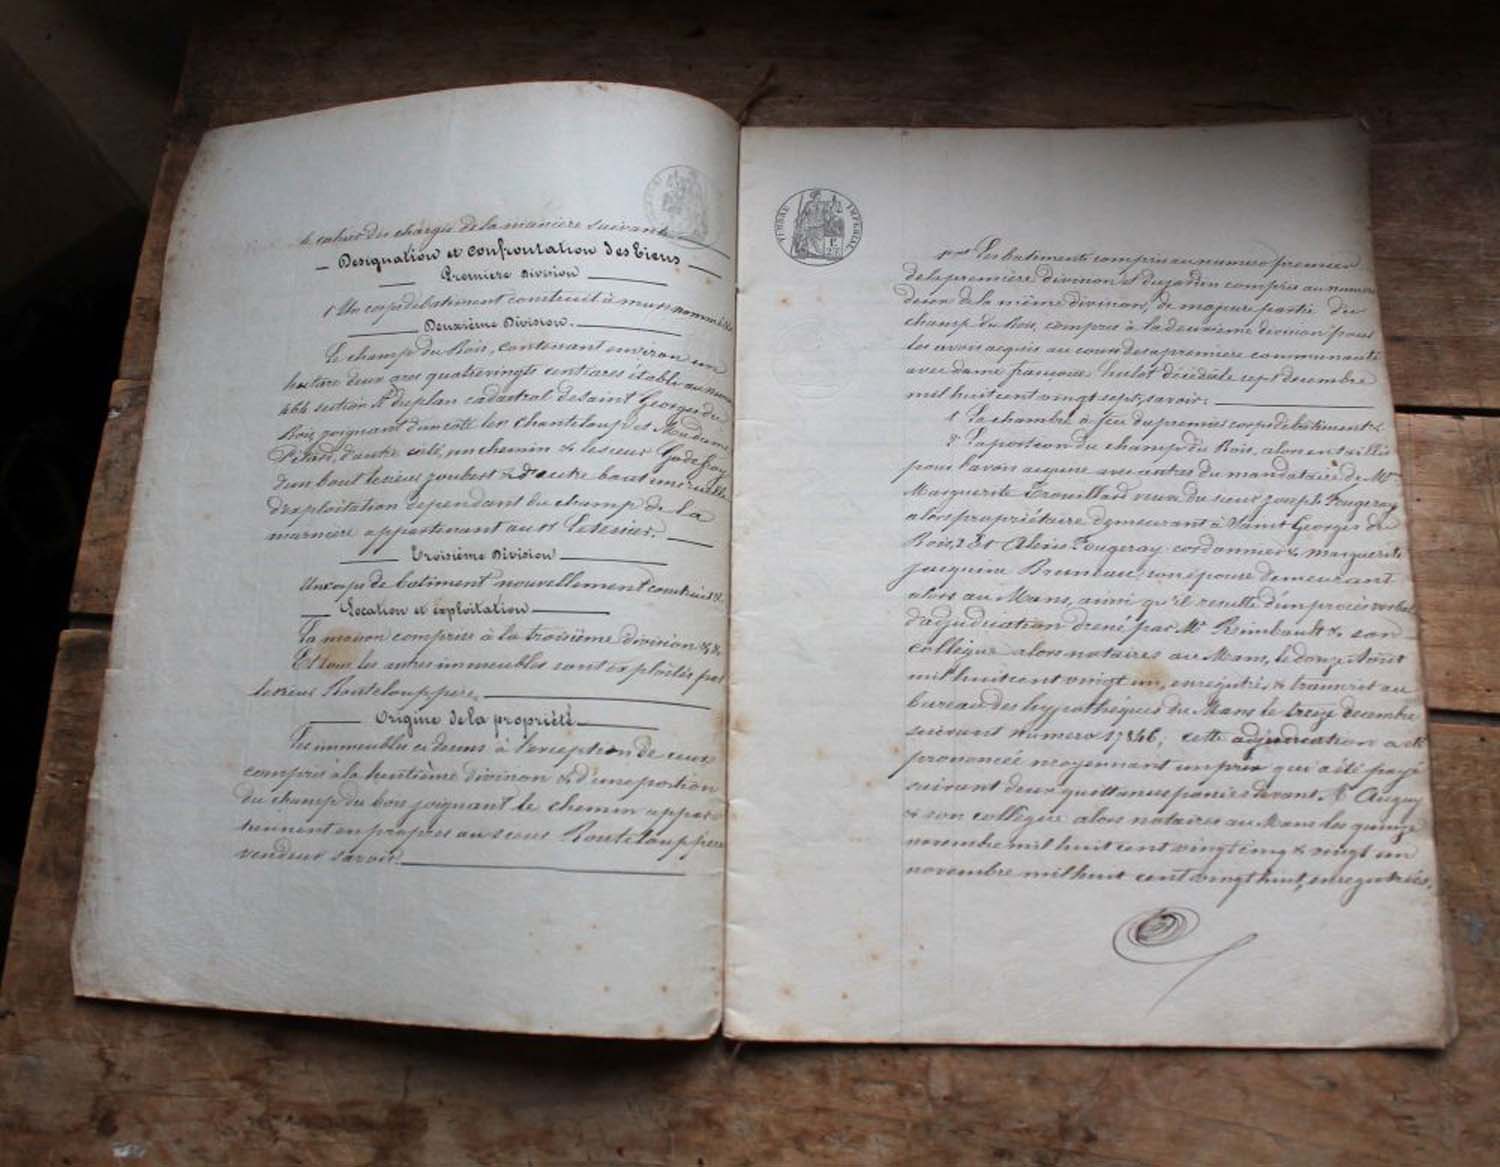 le cahier des charges de la manière suivante
Désignation et confrontation des Biens
Première Division
1° Un corps de batiment construit à murs nommé &
Deuxième Division.
Le champ du Bois, contenant environ un
hectare deux ares quatrevingts centiares établi au numéro
464 section A du plan cadastral de Saint Georges du
Bois, joignant d'un côté les Chanteloup et Madame
d'autre côté, un chemin & le sieur Godefroy
d'un bout le sieur Joubert & d'autre bout une ruelle
d'exploitation dépendant du champ de la
marnière appartenant au Sr Letessier.
Troisième Division
Un corps de batiment nouvellement construit &
Location et exploitation
La maison comprise à la troisième division &&
Et tous les autres immeubles sont exploités par
le sieur Bouteloup père.
Origine de la propriété
Les immeubles ci dessus à l'exception de ceux
compris à la huitième division & d'une portion
du champ du bois joignant le chemin appar
tiennent en propres au sieur Bouteloup père
vendeur savoir.
TIMBRE IMPERIAL
Les batiments compris au numéro premier
de la première division et du jardin compris au numéro
deux de la même division, de majeure partie du
champ du Bois, compris à la deuxième division pour
les avoir acquis au cours de sa première communauté
avec dame françoise hulot décédée le sept decembre
mil huit cent vingt sept, savoir:
1° La chambre à feu du premier corps de batiment &
2° La portion du champ du Bois, alors en taillis
pour l'avoir acquise avec autres du mandataire de Me
Marguerite Trouillard veuve du sieur Joseph Fougeray
alors propriétaire demeurant à Saint Georges du
Bois, 2° Et Alexis Fougeray cordonnier & marguerite
Jacquine Bruneau, son épouse demeurant
alors au Mans, ainsi qu'il resulte d'un procès verbal
d'adjudication dressé par Me Rimbault & son
collègue alors notaires au Mans, le douze Août
mil huit cent vingt un, enregistré & transcrit au
bureau des hypothèques du Mans le treize decembre
suivant numéro 17846; cette adjudication a été
prononcée moyennant un prix qui a été payé
suivant deux quittances passées devant Me Auguy
& son collègue alors notaires au Mans les quinze
novembre mil huit cent vingt cinq & vingt un
novembre mil huit cent vingt huit, enregistrées.